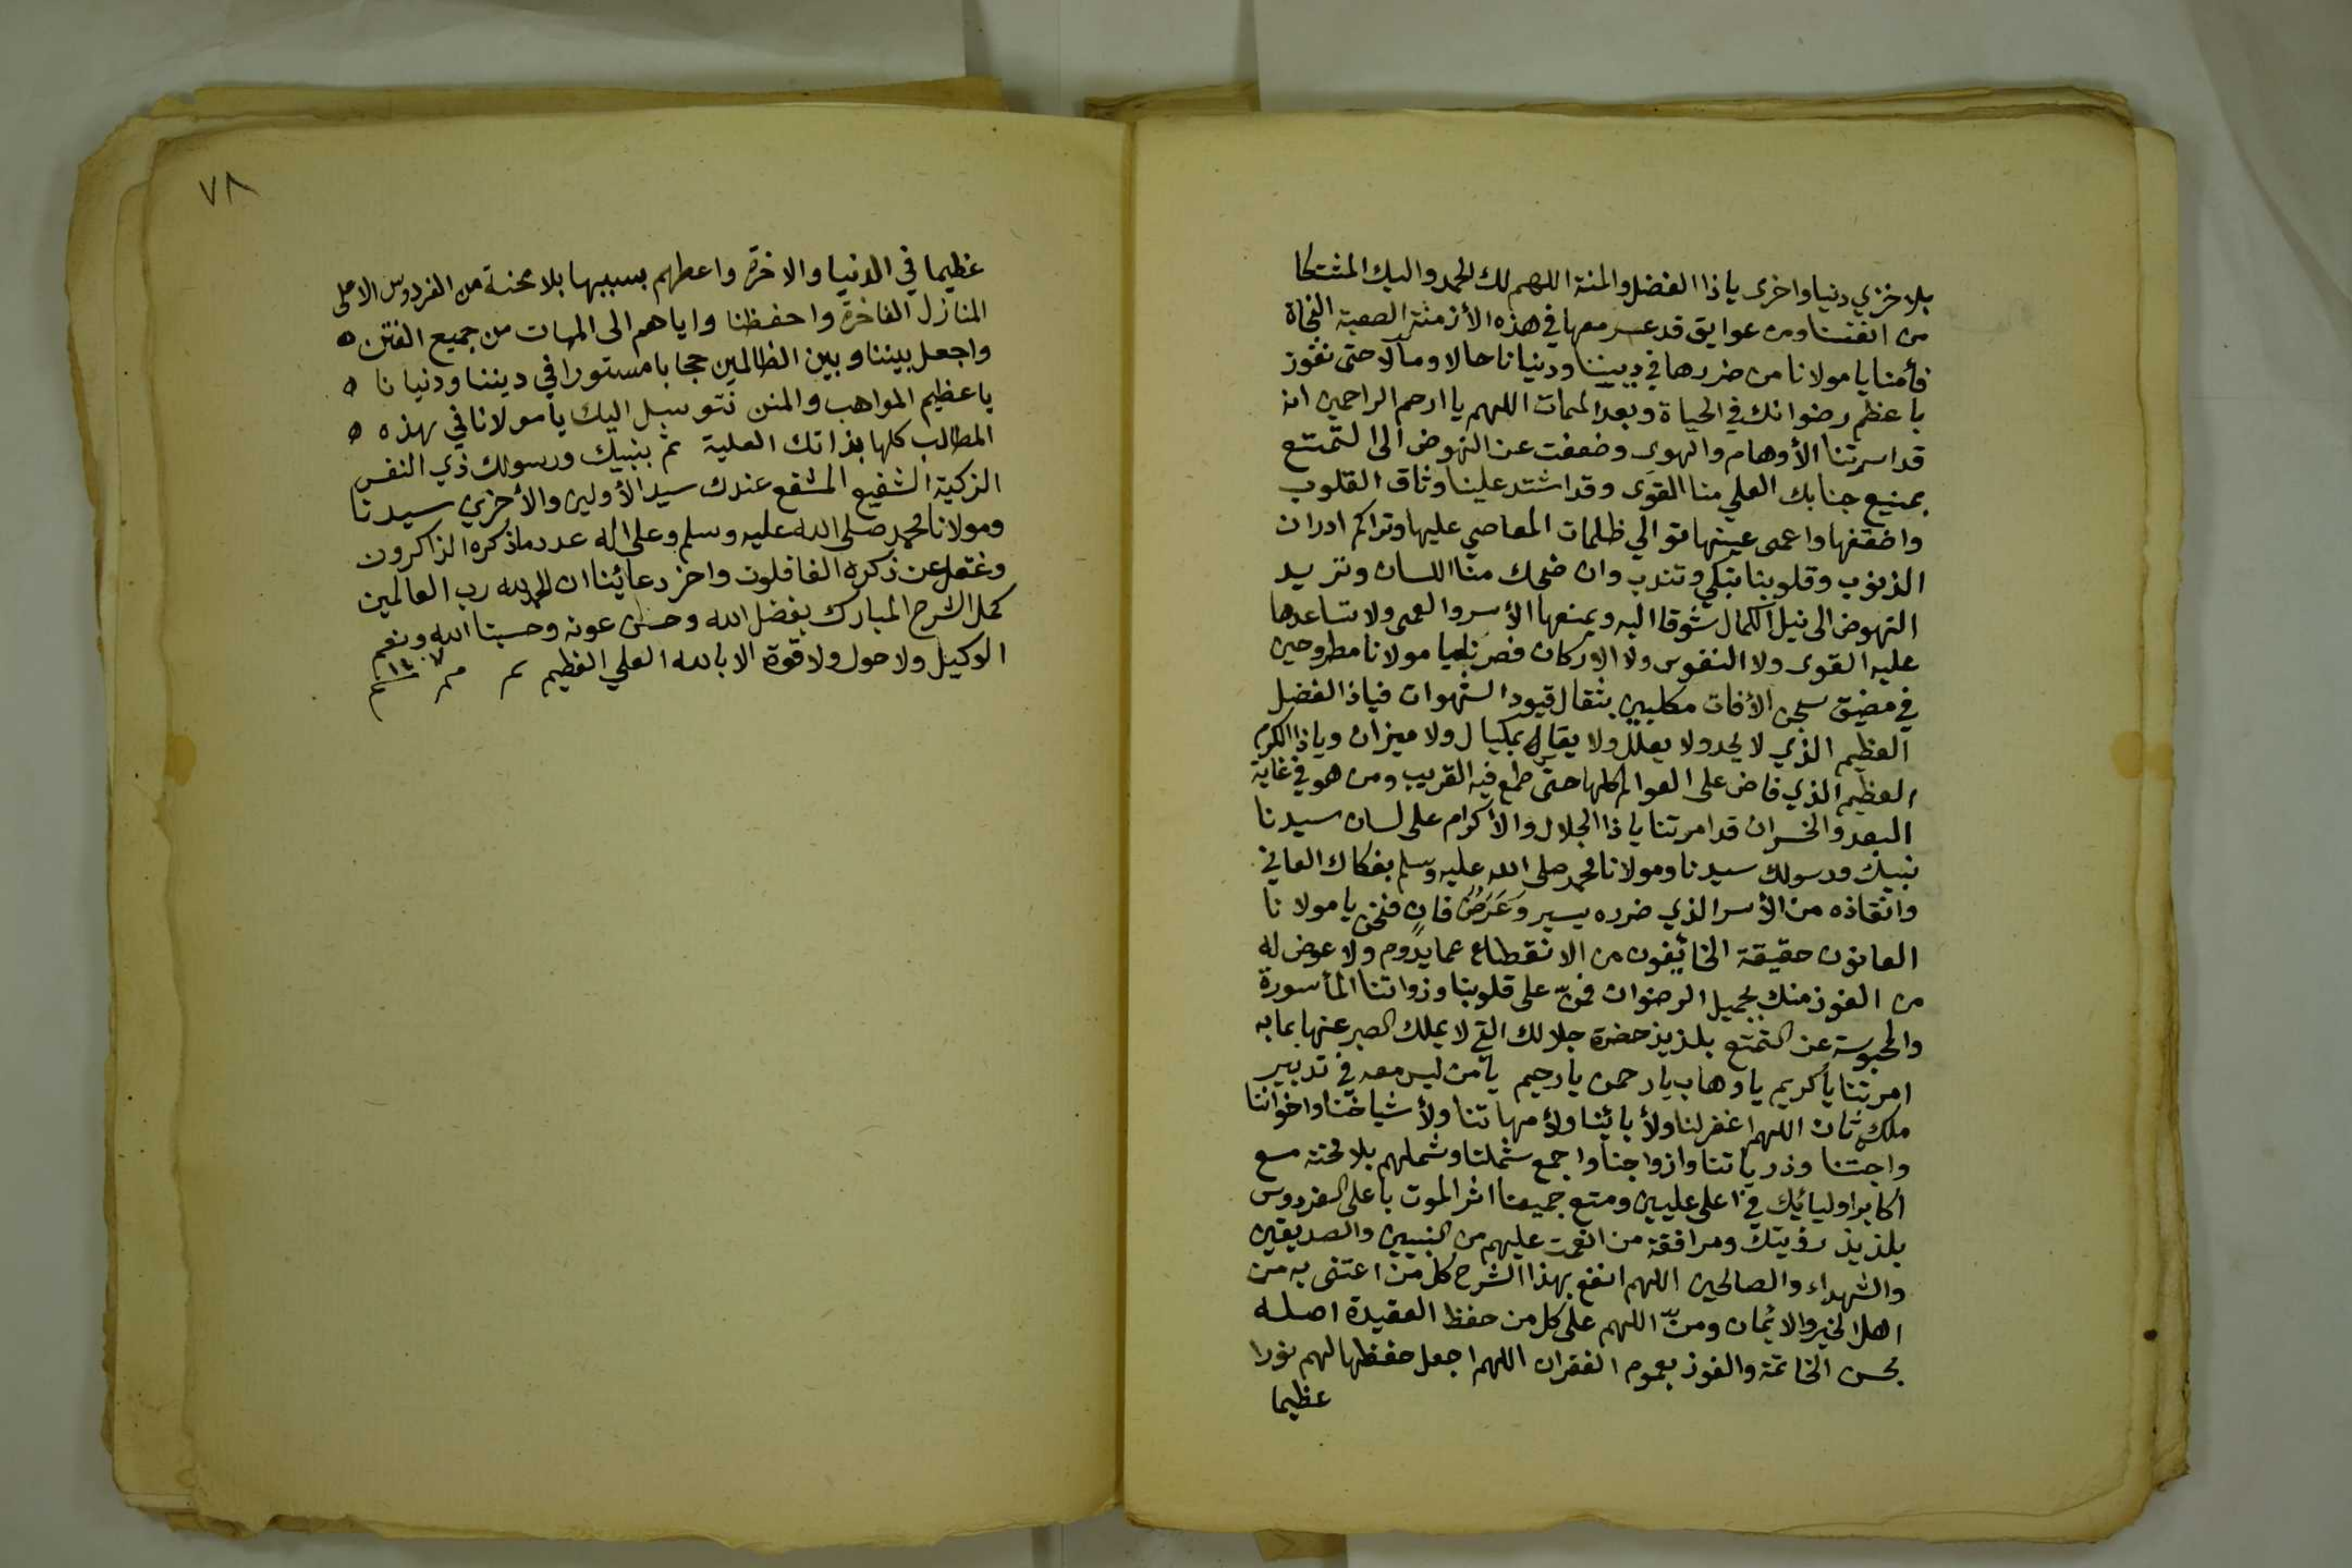 بلا خزي دنيا واخرى ياذا الفضل والمنة اللهم لك الحمد واليك المشتكا
من انفسنا ومن عوايق قد عسر معها في هذه الأزمنة الصعبة النجاة
فأمنا يا مولانا من ضررها في ديننا ودنيانا حالا ومآلا حتى نفوز
باعظم رضوانك في الحياة وبعد الممات اللهم يا ارحم الراحمين انه
قد اسرتنا الأوهام والهوى وضعفت عن النهوض الى التمتع
بمنيع جنابك العلي منا القوى وقد اشتد علينا وثاق القلوب
واضعفها واعمى عينها توالي ظلمات المعاصي عليها وتراكم ادران
الذنوب وقلوبنا تبكي وتندب وان ضحك منا اللسان وتريد
النهوض الى نيل الكمال شوقا اليه ويمنعها الأسر والعمى ولا تساعدها
عليه القوى ولا النفوس ولا الاركان فصرنا يا مولانا مطروحين
في مضيق سجن الأفات مكلبين بثقال قيود الشهوات فياذا الفضل
العظيم الذي لا يحد ولا يعلل ولا يقال بمكيال ولا ميزان وياذا الكرم
العظيم الذي فاض على العوالم كلها حتى طمع فيه القريب ومن هو في غاية
البعد والخسران قد امرتنا ياذا الجلال والاكرام على لسان سيدنا
نبيك ورسولك سيدنا ومولانا محمد صلى الله عليه وسلم بفكاك العاني
وانقاذه من الأسر الذي ضرره يسير وعَرَضٌ فانٍ فنحن يا مولانا
العانون حقيقة الخائفون من الانقطاع عما يدوم ولا عوض له
من الفوز منك بجميل الرضوان فمنّ على قلوبنا وذواتنا المأسورة
والمحبوسة عن التمتع بلذيذ حضرة جلالك التي لا يملك الصبر عنها بما به
امرتنا يا كريم يا وهاب يا رحمن يا رحيم يا من ليس معه في تدبير
ملكه ثان اللهم اغفر لنا ولأبائنا ولأمهاتنا ولأشياخنا واخواننا
واحبتنا وذرياتنا وازواجنا واجمع شملنا وشملهم بلا محنة مع
اكابر اوليائك في اعلى عليين ومتع جميعنا اثر الموت باعلى الفردوس
بلذيذ رؤيتك ومرافقة من انعمت عليهم من النبيين والصديقين
والشهداء والصالحين اللهم انفع بهذا الشرح كل من اعتنى به من
اهل الخير والايمان ومنّ اللهم على كل من حفظ العقيدة اصله
بحسن الخاتمة والفوز بعموم الغفران اللهم اجعل حفظها لهم نورا
عظيما
٧٨
عظيما في الدنيا والاخرة واعطهم بسببها بلا محنة من الفردوس الاعلى
المنازل الفاخرة واحفظنا واياهم الى الممات من جميع الفتن ه
واجعل بيننا وبين الظالمين حجابا مستورا في ديننا ودنيانا ه
يا عظيم المواهب والمنن نتوسل اليك يا مولانا في هذه ه
المطالب كلها بذاتك العلية ثم بنبيك ورسولك ذي النفس
الزكية الشفيع المشفع عندك سيد الأولين والأخرين سيدنا
ومولانا محمد صلى الله عليه وسلم وعلى اله عدد ما ذكره الذاكرون
وغفل عن ذكره الغافلون واخر دعائنا ان الحمد لله رب العالمين
كمل الشرح المبارك بفضل الله وحسن عونه وحسبنا الله ونعم
الوكيل ولا حول ولا قوة الا بالله العلي العظيم م م